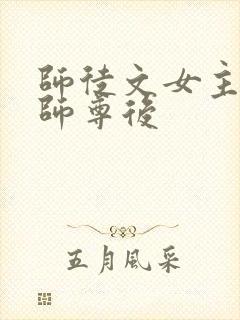 師徒文女主
師尊後
五月風采